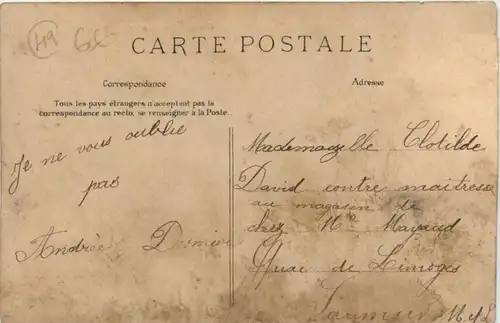 49 60
CARTE POSTALE
Correspondance
Adresse
Tous les pays étrangers n'acceptent pas la
correspondance au recto, se renseigner à la Poste.
Je ne vous oublie
pas
Andrée
Mademazelle Clotilde
David contre maitrese
au magasin de
chez Mr Mayaud
Quai de Limoges
Saumur M et L